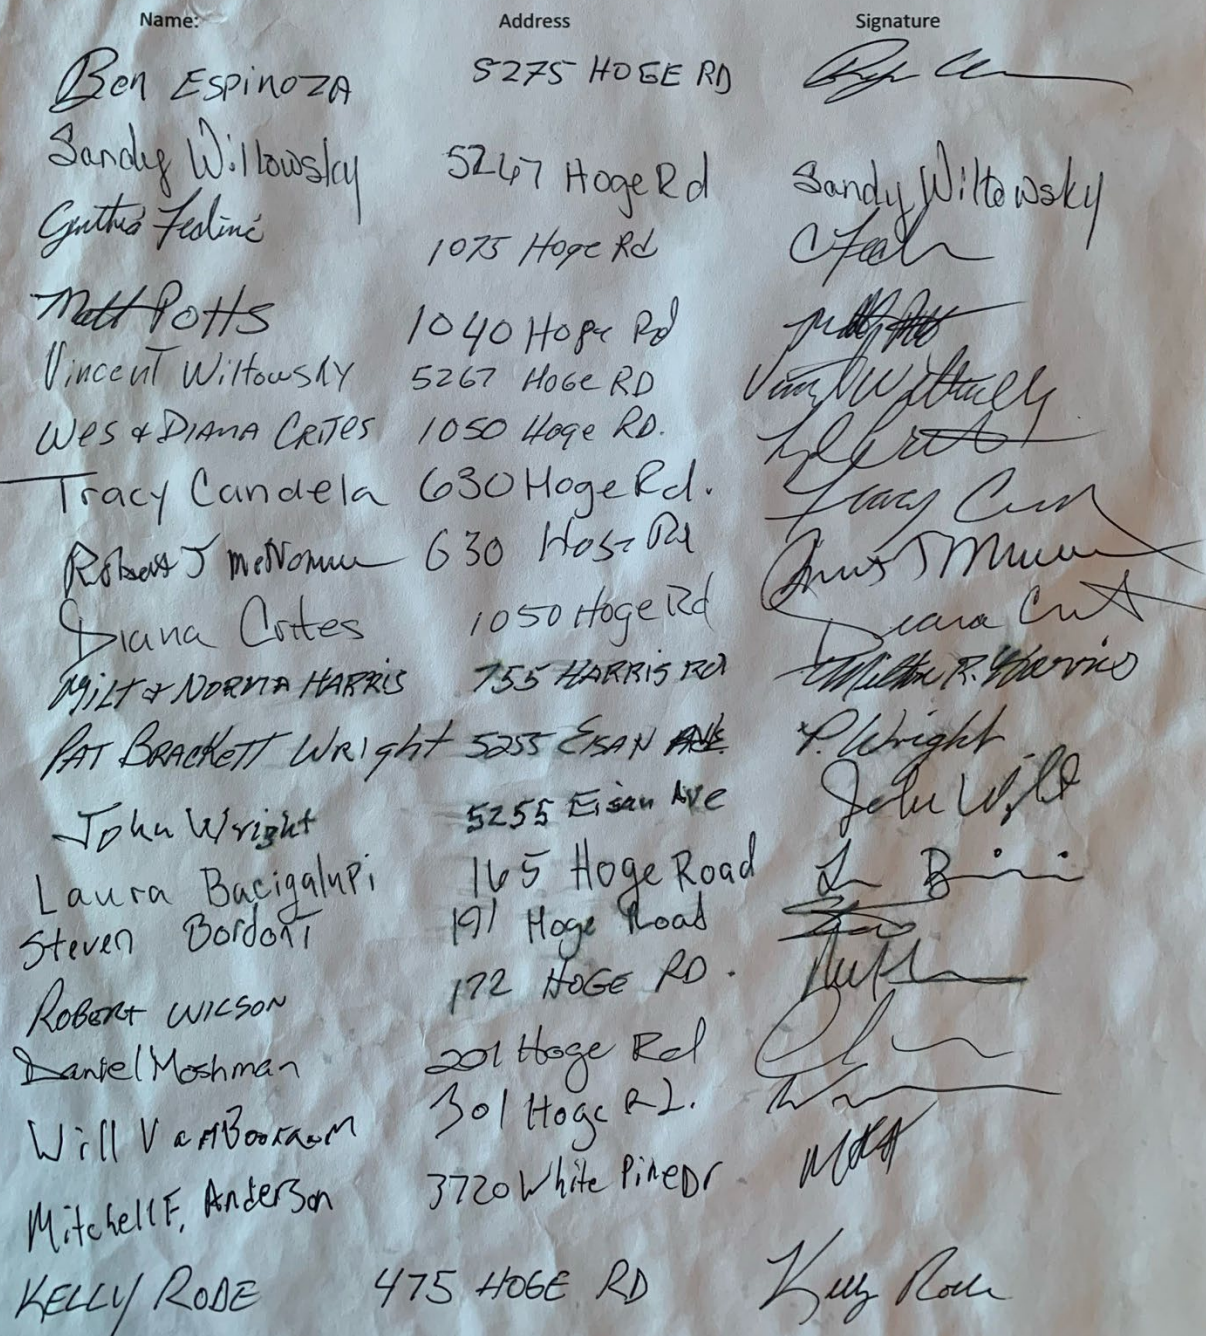 Name: Address Signature
Ben ESPINOZA 5275 HOGE RD
Sandy Willowsky 5267 Hoge Rd Sandy Wiltowsky
1075 Hoge Rd
Matt Potts 1040 Hoge Rd
Vincent Wiltowsky 5267 HOGE RD
WES & DIANA CRITES 1050 Hoge RD.
Tracy Candela 630 Hoge Rd. Tracy
Robert J 630 Hoge Rd
Diana Crites 1050 Hoge Rd Diana
MILT & NORMA HARRIS 755 HARRIS RD Milton R. Harris
PAT BRACKETT WRIGHT 5255 EISAN AVE P. Wright
John Wright 5255 Eisan Ave John
Laura Bacigalupi 165 Hoge Road
Steven Bordoni 191 Hoge Road
ROBERT WILSON 172 HOGE RD.
Daniel Moshman 201 Hoge Rd
Will 301 Hoge Rd.
Mitchell F. Anderson 3720 White Pine Dr
KELLY RODE 475 HOGE RD Kelly Rode